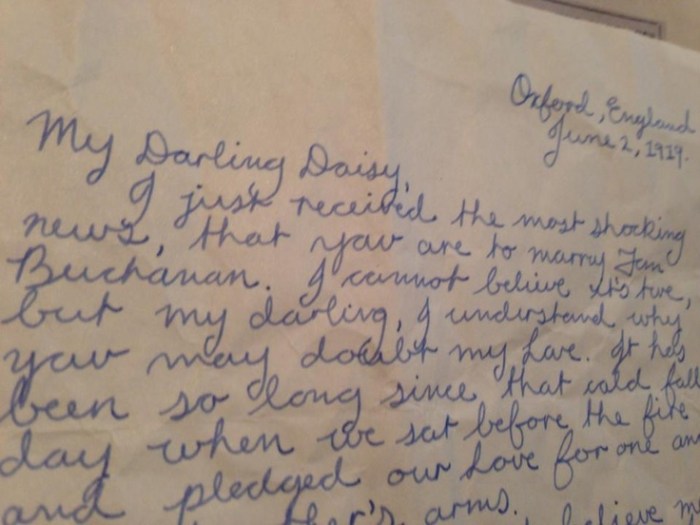 Oxford, England
June 2, 1919.
My Darling Daisy,
I just received the most shocking
news, that yov are to marry Tom
Buchanan. I cannot believe it's true,
but my darling, I understand why
yov may doubt my Love. It has
been so long since that cold fall
day when we sat before the fire
and pledged our Love for one an
other's arms.
believe m